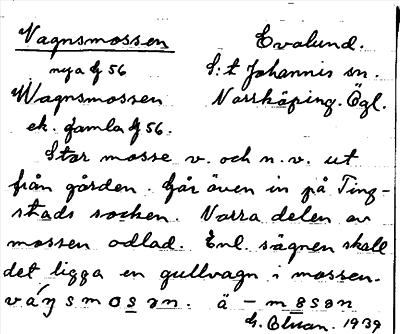 Vagnsmossen Evalund.
nya bl 56 S:t Johannis sn.
Wagnsmossen Norrköping. Ögl.
ek. gamla bl 56.
Stor mosse v. och n.v. ut
från gården. Går även in på Ting-
stads socken. Norra delen av
mossen odlad. Enl. sägnen skall
det ligga en gullvagn i mossen.
ä - məsən
1939